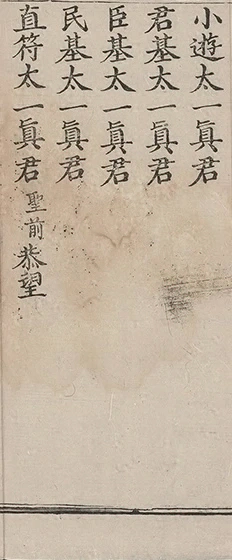 小遊太一眞君
君基太一眞君
臣基太一眞君
民基太一眞君
直符太一眞君聖前恭望